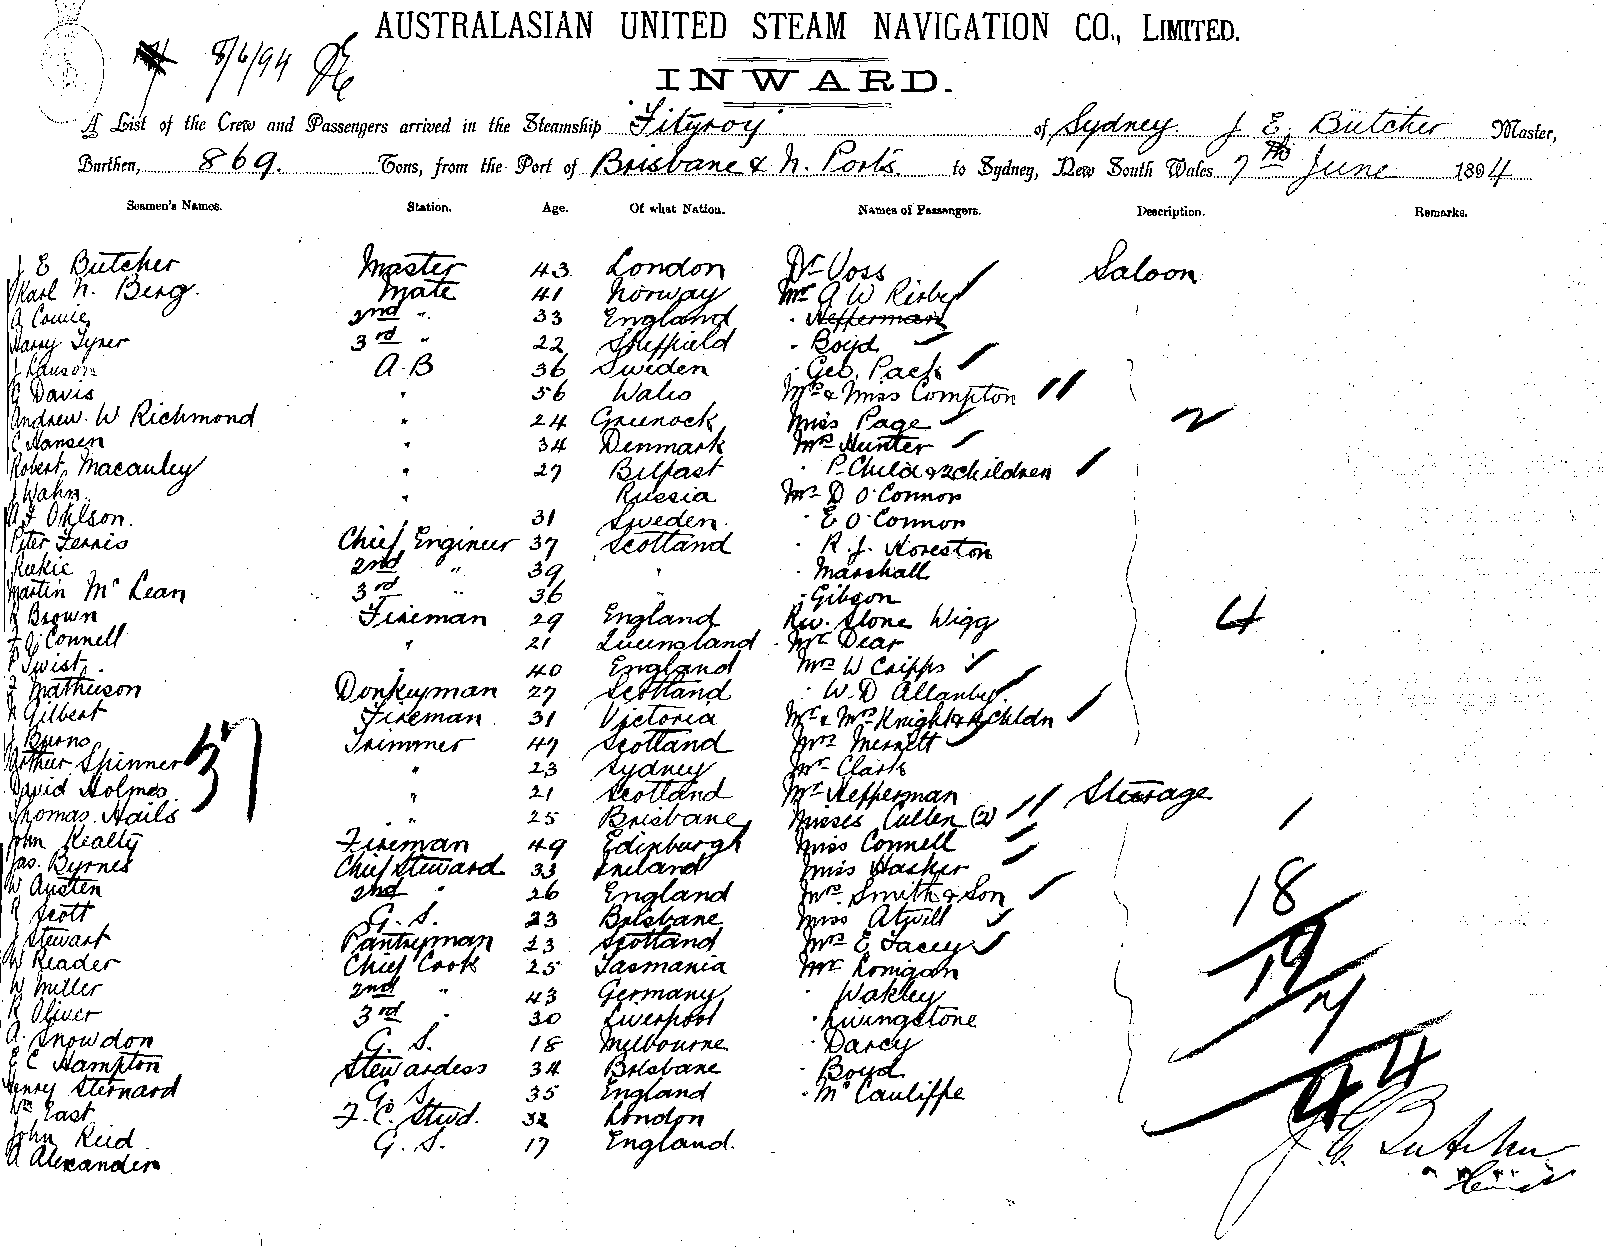 AUSTRALASIAN UNITED STEAM NAVIGATION CO., LIMITED.
8/6/94
INWARD.
A List of the Crew and Passengers arrived in the Steamship Fitzroy of Sydney. J. E. Butcher Master,
Burthen, 869. Tons, from the Port of Brisbane & N. Ports. to Sydney, New South Wales 7th June 1894
Seamen's Names. Station. Age. Of what Nation. Names of Passengers. Description. Remarks.
J E Butcher Master 43 London Dr Voss Saloon
Karl N. Berg. Mate 41 Norway Mr G W Rixby
A Cowie 2nd " 33 England " Hefferman
Harry Tyner 3rd " 22 Sheffield " Boyd
A.B 36 Sweden " Geo. Pack
Davis " 56 Wales Mrs & Miss Compton
Andrew. W Richmond " 24 Greenock Miss Page 2
C Hansen " 34 Denmark Mrs Hunter
Robert Macauley " 27 Bilfast " P. Child & 2 children
J Wahn. " Russia Mr D O'Connor
A F Ohlson. 31 Sweden. " E O'Connor
Peter Ferris Chief Engineer 37 Scotland " R. J. Horeston
Reekie 2nd " 39 " " Marshall
Martin Mc Lean 3rd " 36 " " Gibson
R Brown Fireman 29 England Rev. Stone Wigg 4
F O'Connell " 21 Queensland Mr Dear
P Twist. 40 England Mrs W Cripps
J Mathieson Donkeyman 27 Scotland " W. D Allanby
R Gilbert Fireman 31 Victoria Mr & Mrs Knight & Childn
J Burns Trimmer 47 Scotland Mrs Merrett
Arthur Spinner " 23 Sydney Mr Clark
37
David Holmes " 21 Scotland Mr Hefferman Steerage
Thomas Hails " 25 Brisbane Misses Cullen (2) 1
John Kealty Fireman 49 Edinburgh Miss Connell
Jas. Byrnes Chief Steward 33 Ireland Miss Hasker
W Austen 2nd " 26 England Mrs. Smith & Son 18
R Scott G. S. 23 Brisbane Miss Atwill
J Stewart Pantryman 23 Scotland Mrs E Facey
W Reader Chief Cook 25 Tasmania Mr Lonigan 19
W Miller 2nd " 43 Germany " Wakley 7
R Oliver 3rd " 30 Liverpool " Livingstone
A. Snowdon G. S. 18 Melbourne " Darcy
E C Hampton Stewardess 34 Brisbane " Boyd
Henry Sternard G. S. 35 England " McCauliffe 44
Wm East F. C. Stwd. 32 London
John Reid G. S. 17 England.
A Alexander
J E Butcher